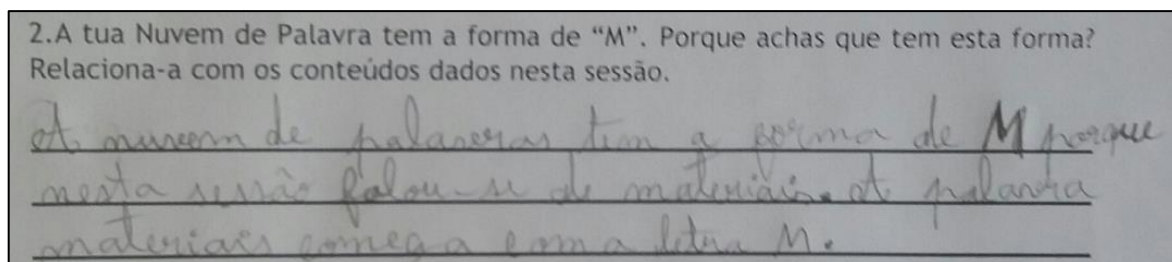 2.A tua Nuvem de Palavra tem a forma de “M”. Porque achas que tem esta forma?
Relaciona-a com os conteúdos dados nesta sessão.
A nuvem de palavras tem a forma de M porque
nesta sessão falou-se de materiais. A palavra
materiais começa com a letra M.